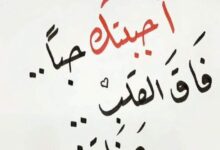 أحببتك حباً..
فَاقَ القلب..